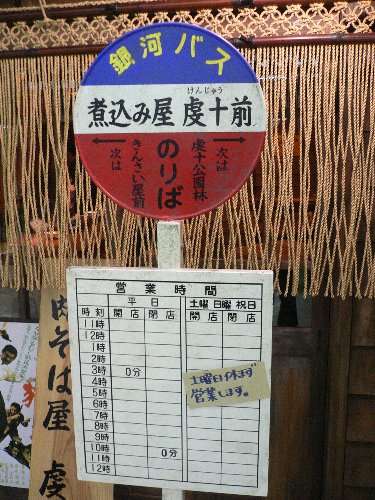 銀河バス
けんじゅう
煮込み屋 虔十前
のりば
次は
虔十公園林
次は
きんさい屋前
営業時間
平日
土曜 日曜 祝日
時刻 開店 閉店 開店 閉店
11時
12時
1時
2時
3時 0分
4時
5時
6時
7時
8時
9時
10時
11時 0分
12時
土曜日休まず
営業します。
肉そば屋 虔